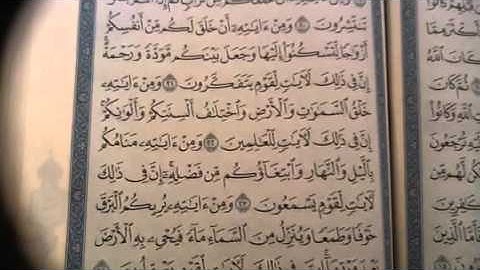 وَعَمَرُوهَا
كَانَ ٱللَّهُ
ثُمَّ كَانَ
ٱللَّهِ وَكَانُوا۟
إِلَيْهِ تُرْجَعُونَ
لَّهُم مِّن
كَٰفِرِينَ
فَأَمَّا ٱلَّذِينَ
تَنتَشِرُونَ ٢٠ وَمِنْ ءَايَٰتِهِۦٓ أَنْ خَلَقَ لَكُم مِّنْ أَنفُسِكُمْ
أَزْوَٰجًا لِّتَسْكُنُوٓا۟ إِلَيْهَا وَجَعَلَ بَيْنَكُم مَّوَدَّةً وَرَحْمَةً
إِنَّ فِى ذَٰلِكَ لَءَايَٰتٍ لِّقَوْمٍ يَتَفَكَّرُونَ ٢١ وَمِنْ ءَايَٰتِهِۦ
خَلْقُ ٱلسَّمَٰوَٰتِ وَٱلْأَرْضِ وَٱخْتِلَٰفُ أَلْسِنَتِكُمْ وَأَلْوَٰنِكُمْ
إِنَّ فِى ذَٰلِكَ لَءَايَٰتٍ لِّلْعَٰلِمِينَ ٢٢ وَمِنْ ءَايَٰتِهِۦ مَنَامُكُم
بِٱلَّيْلِ وَٱلنَّهَارِ وَٱبْتِغَآؤُكُم مِّن فَضْلِهِۦٓ إِنَّ فِى ذَٰلِكَ
لَءَايَٰتٍ لِّقَوْمٍ يَسْمَعُونَ ٢٣ وَمِنْ ءَايَٰتِهِۦ يُرِيكُمُ ٱلْبَرْقَ
خَوْفًا وَطَمَعًا وَيُنَزِّلُ مِنَ ٱلسَّمَآءِ مَآءً فَيُحْىِۦ بِهِ ٱلْأَرْضَ